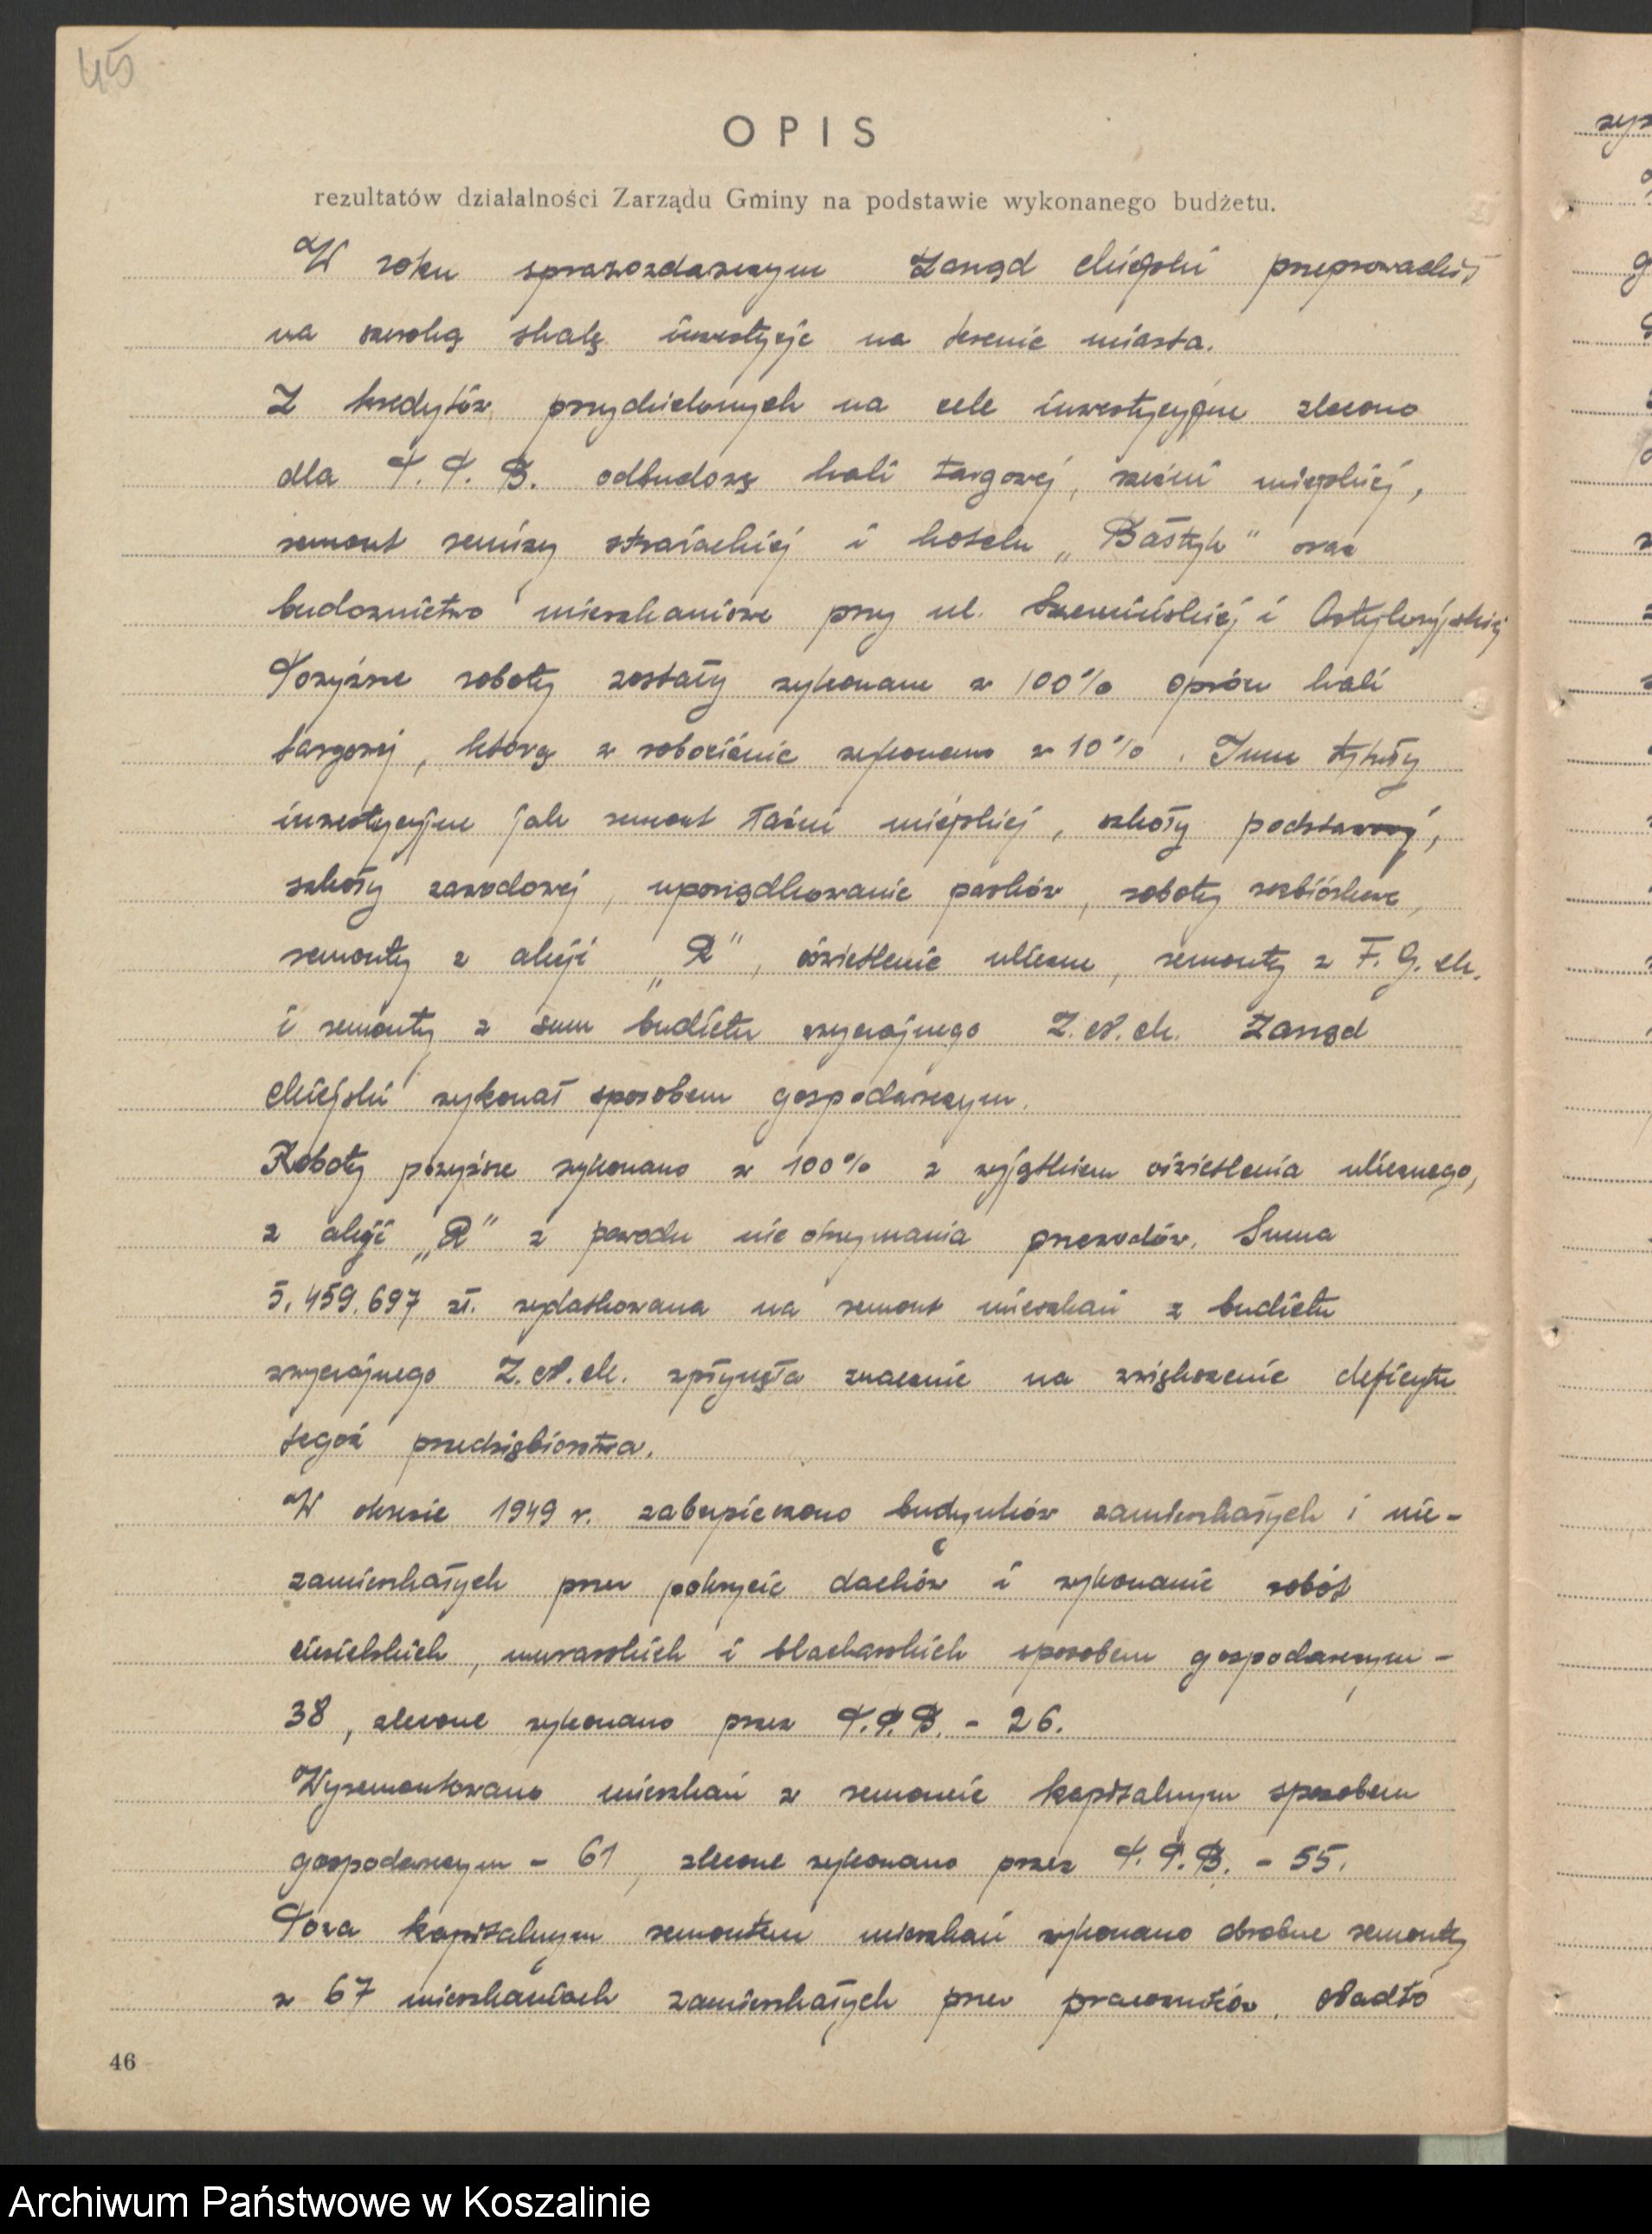 45
OPIS
rezultatów działalności Zarządu Gminy na podstawie wykonanego budżetu.
W roku sprawozdawczym Zarząd Miejski przeprowadził
na szeroką skalę inwestycje na terenie miasta.
Z kredytów przydzielonych na cele inwestycyjne zlecono
dla P.P.B. odbudowę hali targowej, rzeźni miejskiej,
remont remizy strażackiej i hotelu „Bałtyk" oraz
budownictwo mieszkaniowe przy ul. i Artyleryjskiej
Powyższe roboty zostały wykonane w 100% oprócz hali
targowej, którą w robociźnie wykonano w 10%. Inne tytuły
inwestycyjne jak remont łaźni miejskiej, szkoły podstawowej,
szkoły zawodowej, uporządkowanie parków, roboty rozbiórkowe,
remonty z akcji „R", oświetlenie uliczne, remonty z F.G.M.
i remonty z sum budżetu zwyczajnego Z.N.M. Zarząd
Miejski wykonał sposobem gospodarczym.
Roboty powyższe wykonano w 100% z wyjątkiem oświetlenia ulicznego,
z akcji „R" z powodu nie otrzymania przewodów. Suma
5.459.697 zł. wydatkowana na remont mieszkań z budżetu
zwyczajnego Z.N.M. wpłynęła znacznie na zwiększenie deficytu
tegoż przedsiębiorstwa.
W okresie 1949 r. zabezpieczono budynków zamieszkałych i nie-
zamieszkałych przez pokrycie dachów i wykonanie robót
ciesielskich, murarskich i blacharskich sposobem gospodarczym -
38, zlecone wykonano przez P.P.B. - 26.
Wyremontowano mieszkań w remoncie kapitalnym sposobem
gospodarczym - 61, zlecone wykonano przez P.P.B. - 55.
Poza kapitalnym remontem mieszkań wykonano drobne remonty
w 67 mieszkaniach zamieszkałych przez pracowników. Nadto
46
Archiwum Państwowe w Koszalinie